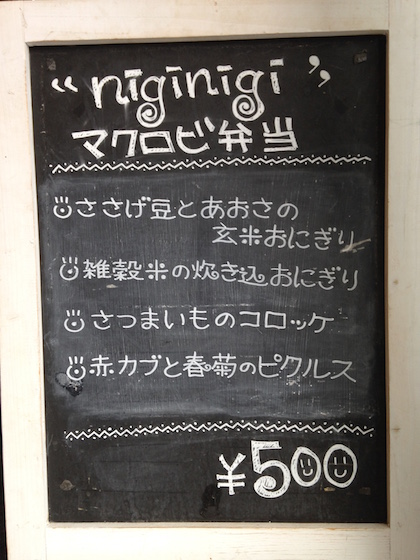 “niginigi”
マクロビ弁当
ささげ豆とあおさの
玄米おにぎり
雑穀米の炊き込おにぎり
さつまいものコロッケ
赤カブと春菊のピクルス
¥500